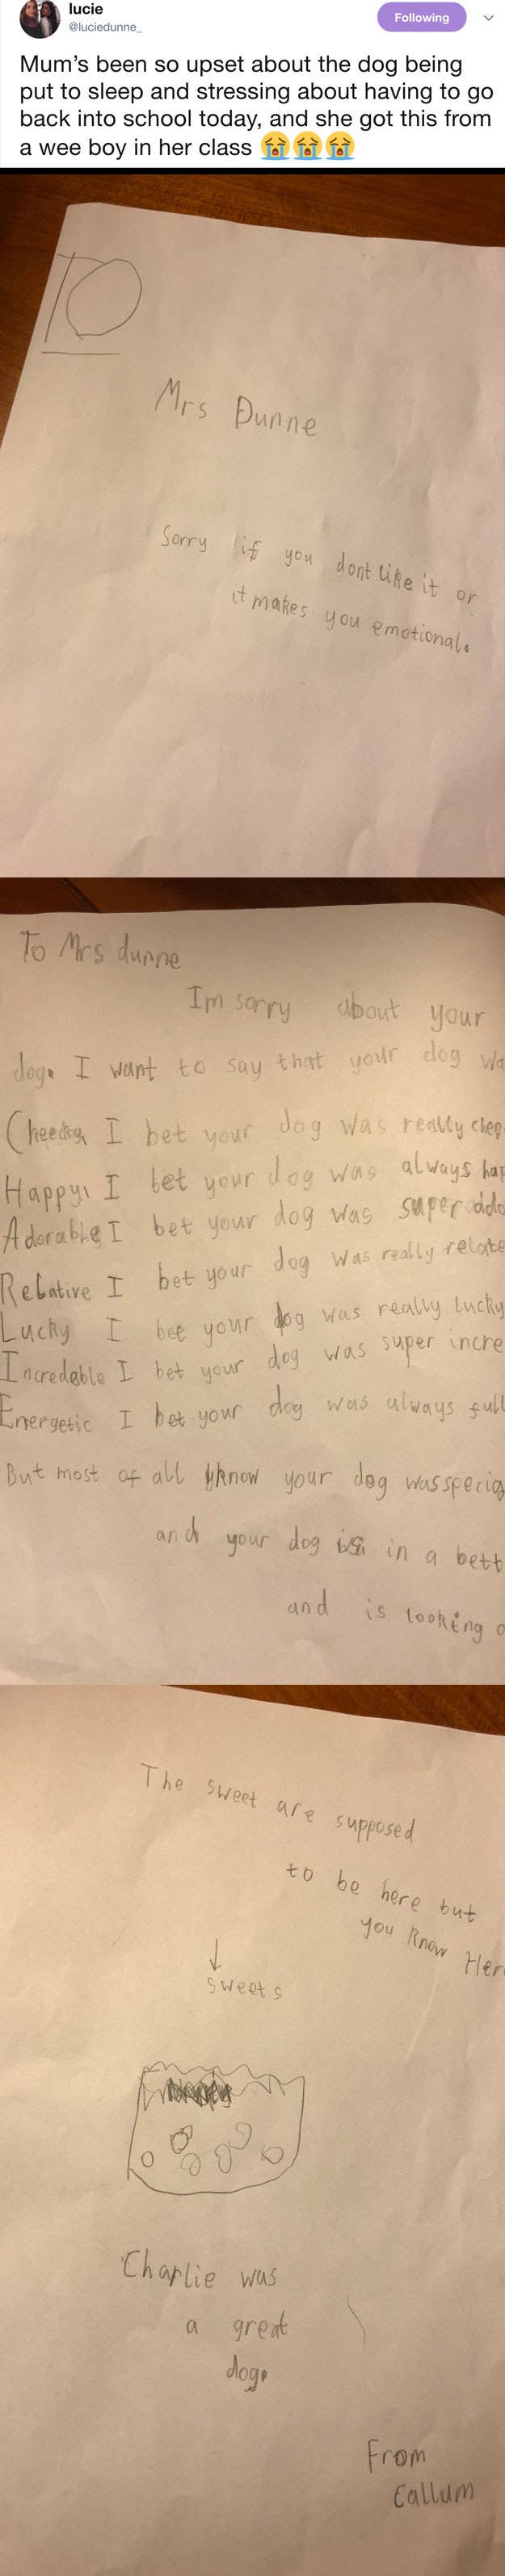 lucie
@luciedunne_
Following
Mum's been so upset about the dog being
put to sleep and stressing about having to go
back into school today, and she got this from
a wee boy in her class 😭😭😭
TO
Mrs Dunne
Sorry if you dont like it or
it makes you emotional.
To Mrs dunne
Im sorry about your
dog. I want to say that your dog wa
Cheeky I bet your dog was really chee
Happy I bet your dog was always hap
Adorable I bet your dog was super ado
Relative I bet your dog was really relate
Lucky I bet your dog was really lucky
Incredeble I bet your dog was super incre
Energetic I bet your dog was always full
But most of all I know your dog was specia
and your dog is in a bett
and is looking o
The sweet are supposed
to be here but
you know Her
↓
sweets
Charlie was
a great
dog.
From
Callum